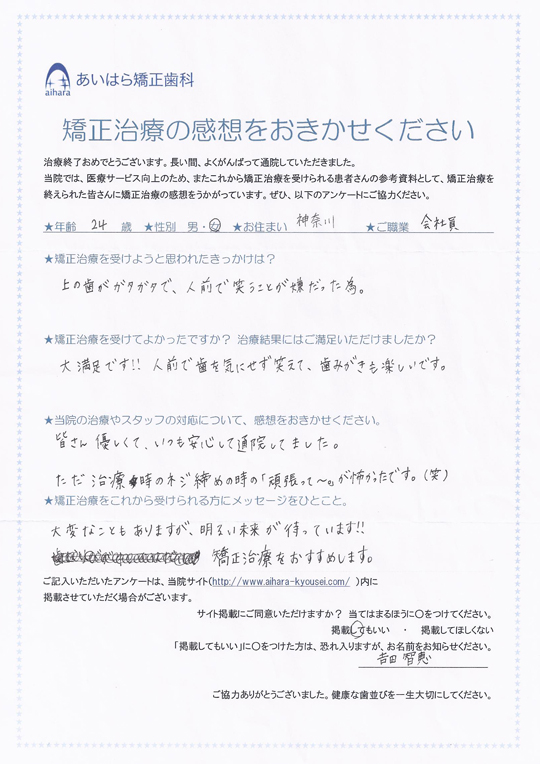 aihara
あいはら矯正歯科
矯正治療の感想をおきかせください
治療終了おめでとうございます。長い間、よくがんばって通院していただきました。
当院では、医療サービス向上のため、またこれから矯正治療を受けられる患者さんの参考資料として、矯正治療を
終えられた皆さんに矯正治療の感想をうかがっています。ぜひ、以下のアンケートにご協力ください。
★年齢 24 歳 ★性別 男・女 ★お住まい 神奈川 ★ご職業 会社員
★矯正治療を受けようと思われたきっかけは？
上の歯がガタガタで、人前で笑うことが嫌だった為。
★矯正治療を受けてよかったですか？ 治療結果にはご満足いただけましたか？
大満足です!! 人前で歯を気にせず笑えて、歯みがきも楽しいです。
★当院の治療やスタッフの対応について、感想をおきかせください。
皆さん優しくて、いつも安心して通院してました。
ただ治療時のネジ締めの時の「頑張って〜」が怖かったです。(笑)
★矯正治療をこれから受けられる方にメッセージをひとこと。
大変なこともありますが、明るい未来が待っています!!
矯正治療をおすすめします。
ご記入いただいたアンケートは、当院サイト(http://www.aihara-kyousei.com/ )内に
掲載させていただく場合がございます。
サイト掲載にご同意いただけますか？ 当てはまるほうに〇をつけてください。
掲載してもいい ・ 掲載してほしくない
「掲載してもいい」に〇をつけた方は、恐れ入りますが、お名前をお知らせください。
吉田 智恵
ご協力ありがとうございました。健康な歯並びを一生大切にしてください。